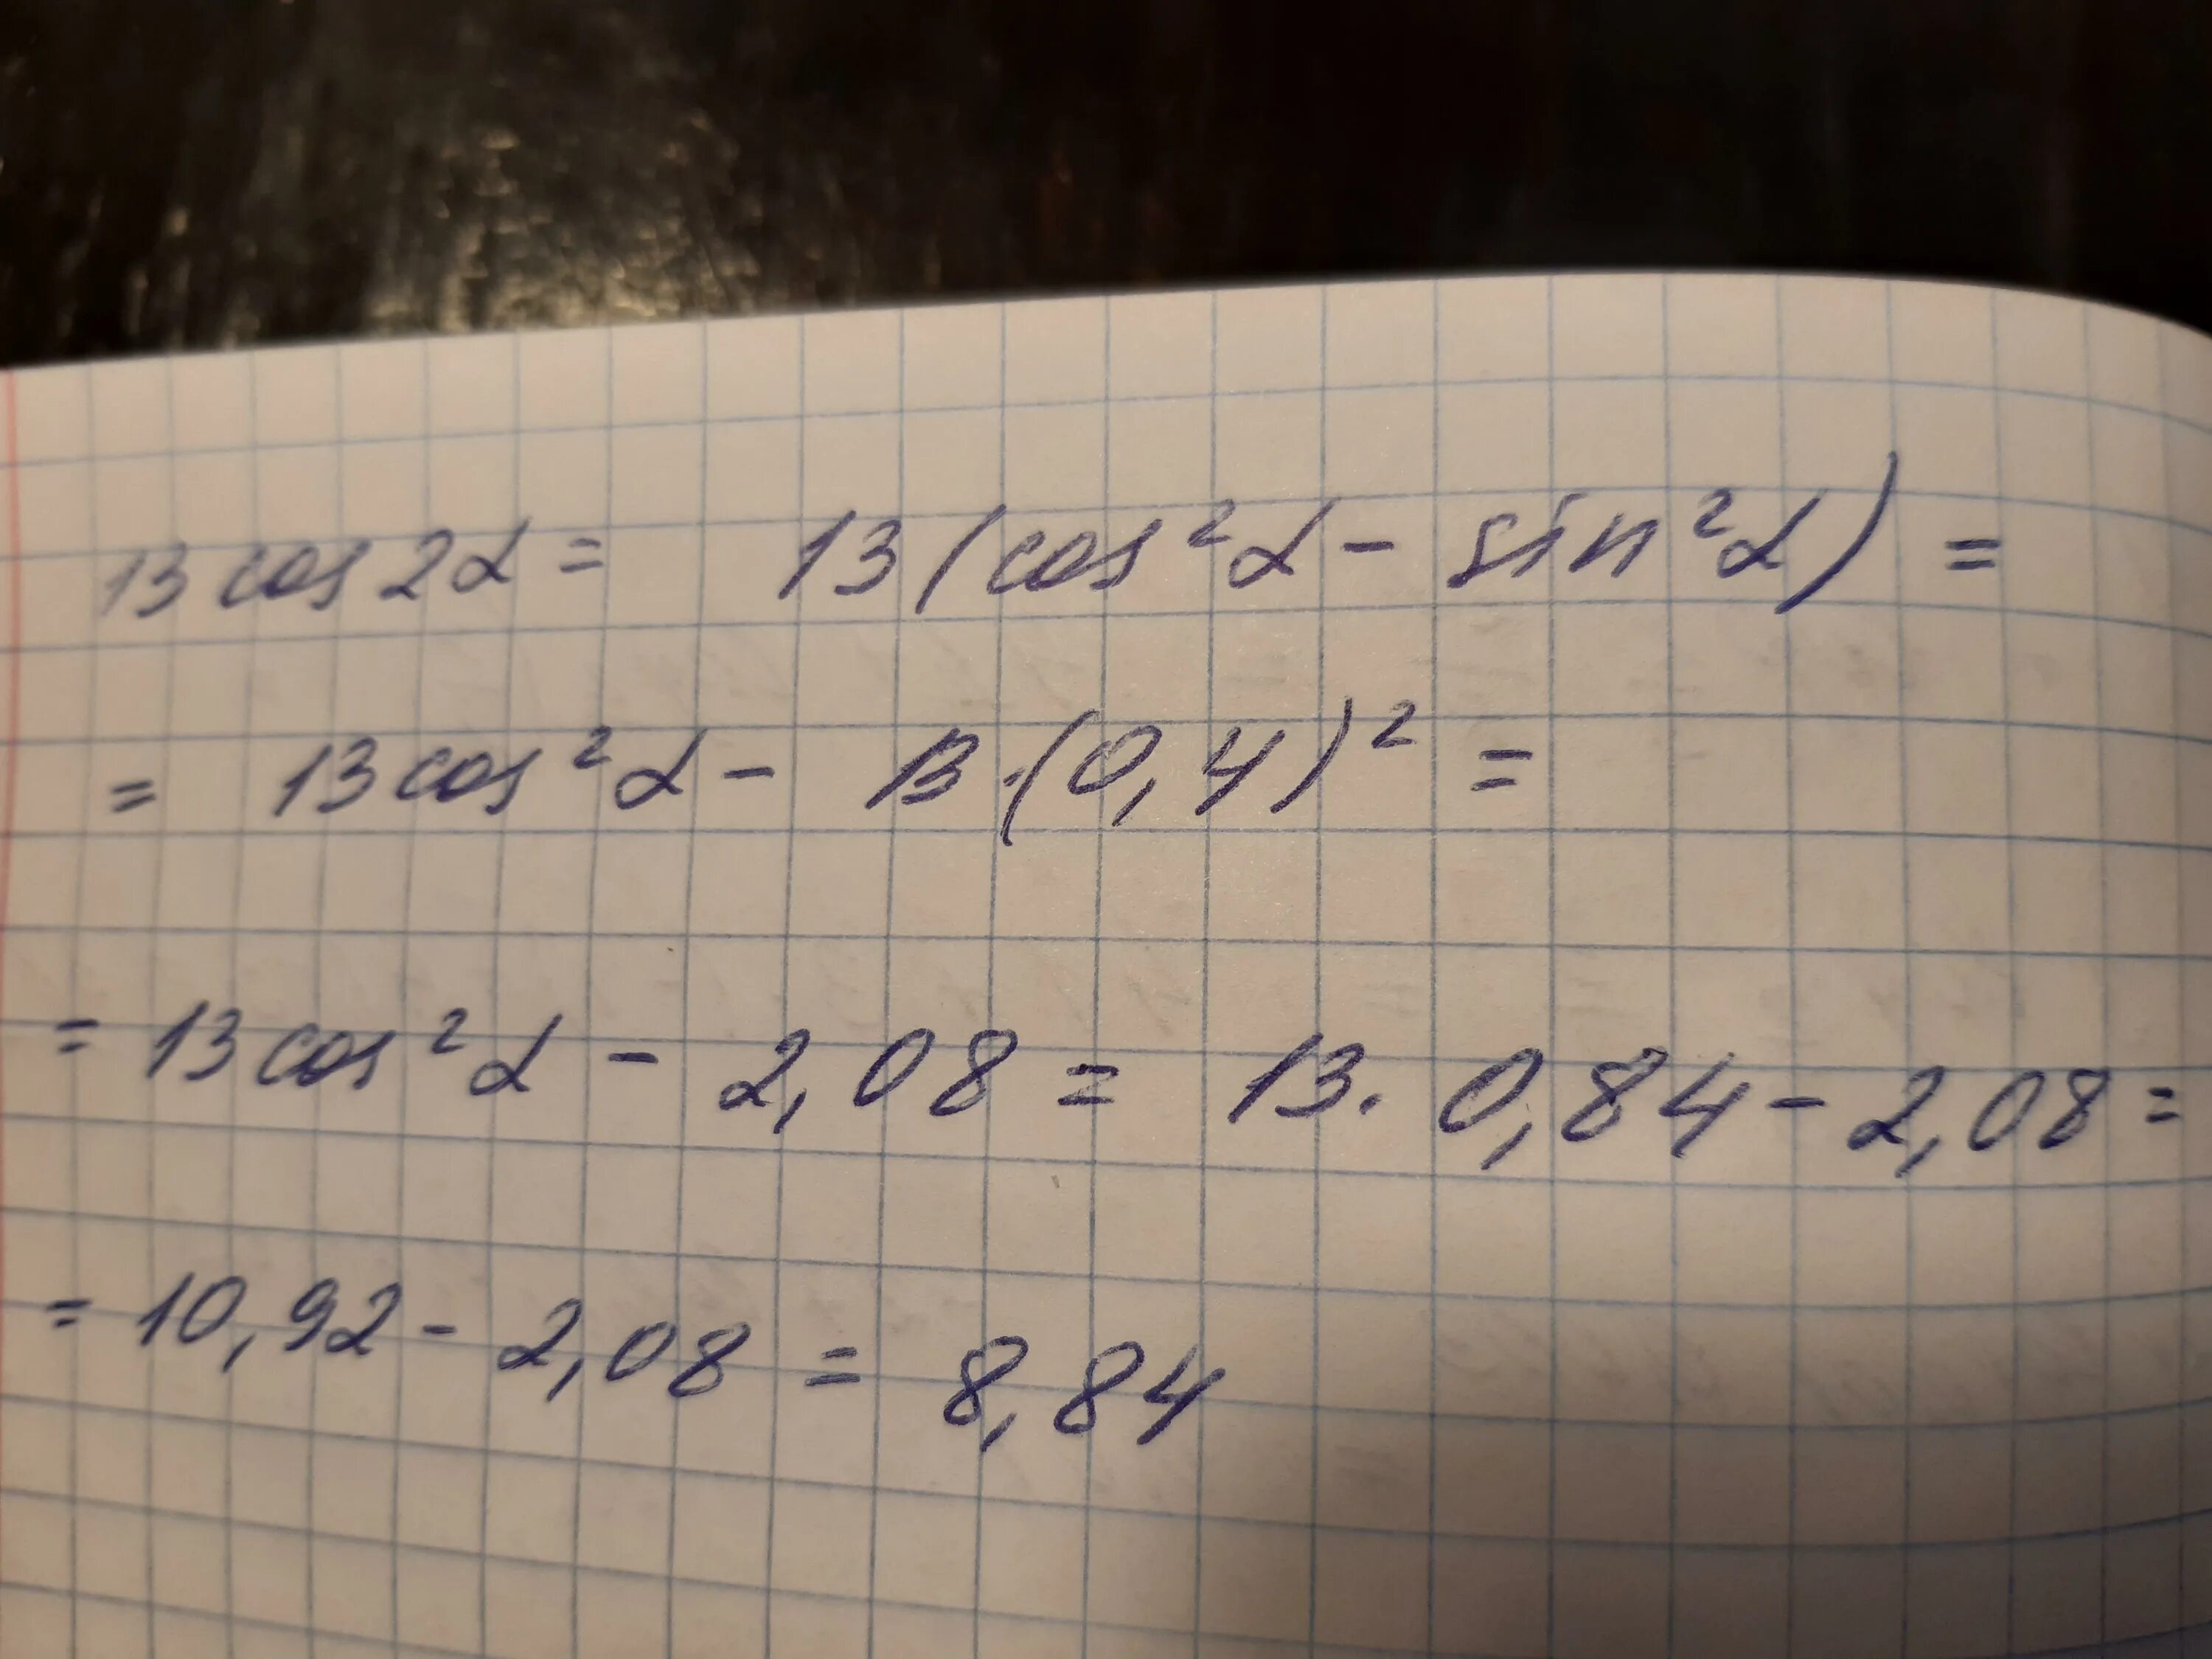 13 cos 2α = 13 (cos²α - sin²α) =
= 13 cos²α - 13 · (0,4)² =
= 13 cos²α - 2,08 = 13 · 0,84 - 2,08 =
= 10,92 - 2,08 = 8,84